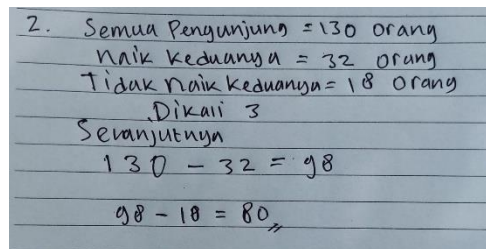 2. Semua Pengunjung = 130 orang
Naik Keduanya = 32 Orang
Tidak Naik Keduanya = 18 Orang
Dikali 3
Selanjutnya
130 - 32 = 98
98 - 18 = 80